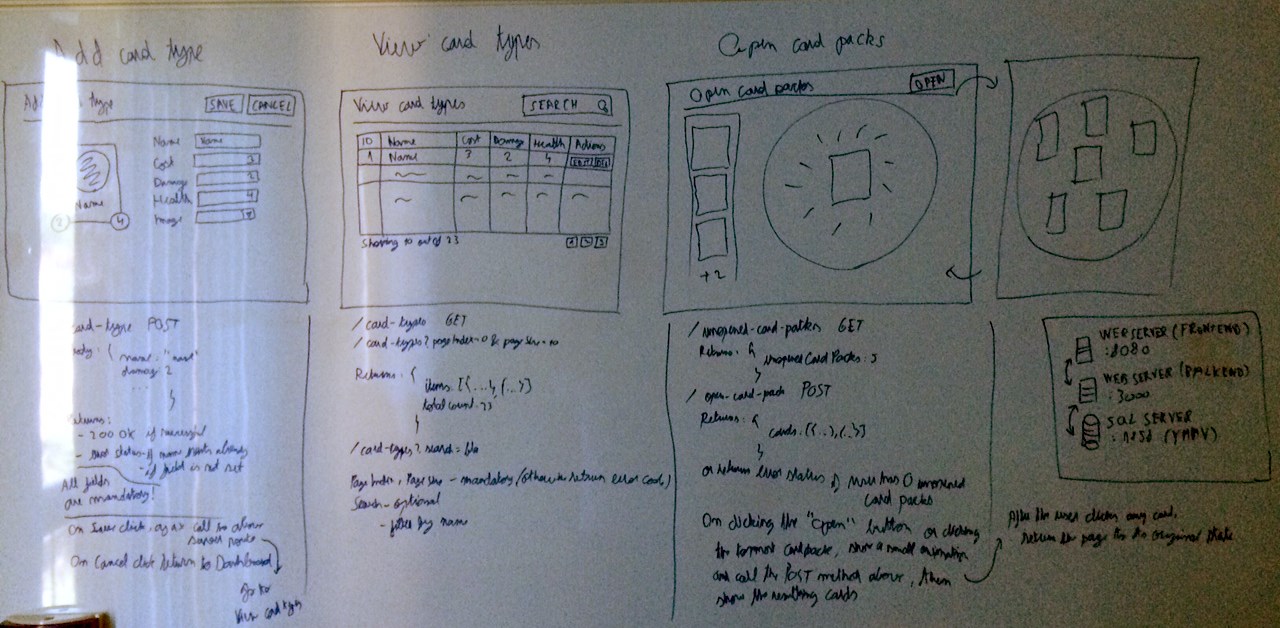 Add card type
SAVE CANCEL
type
Name Name
Cost 3
Damage 2
Health 4
Image
Name
2 4
card-type POST
Body: {
name: "name"
damage: 2
...
}
Returns:
- 200 OK if successful
- error status if name exists already
- if field is not set
All fields
are mandatory!
On Save click, ajax call to above
server route
On Cancel click return to Dashboard
Go to
View card types
View card types
View card types SEARCH
ID Name Cost Damage Health Actions
1 Name 3 2 4 EDIT DEL
Showing 10 out of 23
1 2 3
/card-types GET
/card-types?pageIndex=0&pageSize=10
Returns: {
items: [{...}, {...}]
total count: 23
}
/card-types?search=bla
Page Index, Page Size - mandatory (otherwise return error code)
Search - optional
- filter by name
Open card packs
Open card packs OPEN
+2
/unopened-card-packs GET
Returns: {
unopenedCardPacks: 5
}
/open-card-pack POST
Returns: {
cards: [{...}, {...}]
}
or return error status if user has 0 unopened
card packs
On clicking the "Open" button or clicking
the topmost card pack, show a small animation
and call the POST method above, then
show the resulting cards
WEB SERVER (FRONTEND)
:8080
WEB SERVER (BACKEND)
:3000
SQL SERVER
After the user clicks any card,
return the page to its original state